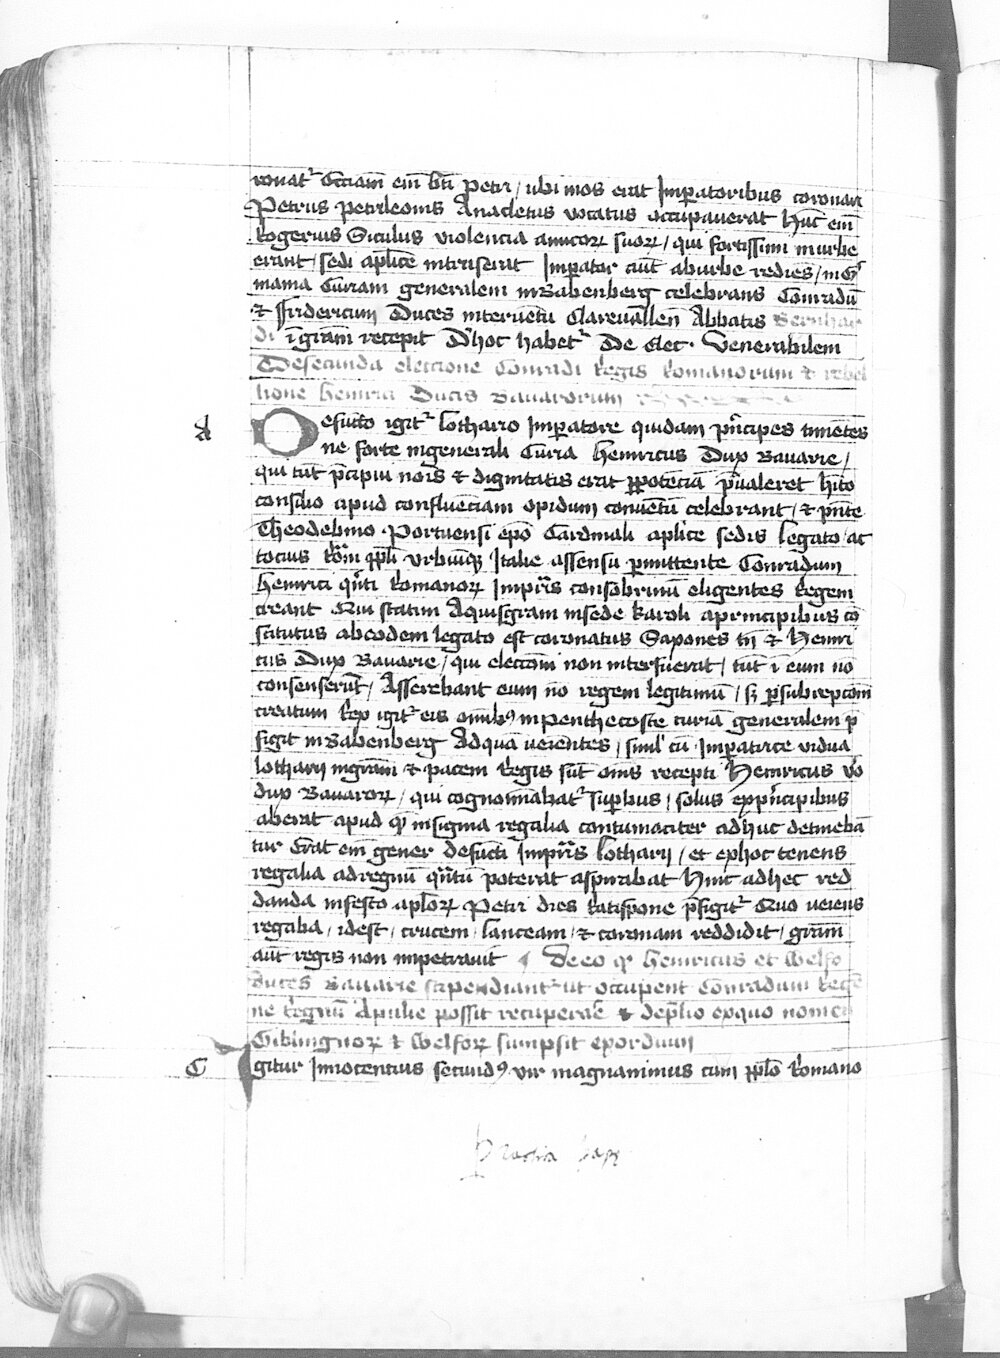 ronatr Ecciam em bti petri / ubi mos erat Imperatoribus coronari
Petrus petrleonis Anacletus vocatus occupaverat Hūc em
Rogerius Siculus violencia amicoꝝ suoꝝ / qui fortissimi in urbe
erant / sedi aplice intruserat Imperator aut ab urbe rediēs / in Gͬ
mania Curiam generalem in Babenberg celebrans Conradū
⁊ Fridericum Duces interventu Clarevallen Abbatis Bernhar
di ī grām recepit D' hoc habetr De elec. Venerabilem
De secunda electione Conradi Regis Romanorum ⁊ rebel
lione heinrici Ducis Bavarorum
A
Defuncto igitr lothario Imperatore quidam pncipes timētes
ne forte in generali Curia heinricus Dux Bavarie /
qui tūc pcipui nois ⁊ dignitatis erat ꝑ potēciā pvaleret hito
consilio apud confluenciam opidum conventū celebrant / ⁊ pnte
Theodewino Portuensi epo Cardinali aplice sedis legato / ac
tocius Romi ppli urbiumqꝫ Italie assensū pmittente Conradum
heinrici quīti Romanoꝝ Impris consobrinū eligentes Regem
creant Qui statim Aquisgrani in sede karoli a principibus cō
stitutus ab eodem legato est coronatus Saxones tn ⁊ Heinri
cus Dux Bavarie / qui electioni non interfuerat / tūc ī eum nō
consenserūt / Asserebant eum nō regem legitimū / sꝫ p subrepcōm
creatum Rex igitr eis omibꝰ in penthecoste curiā generalem p
figit in Babenberg Ad quā veientes / simul cū Imperatrice vidua
lotharii in grām ⁊ pacem Regis sūt omis recepti Heinricus vo
dux Bavaroꝝ / qui cognominabatr supbus / solus ex pncipibus
aberat apud quem insignia regalia contumaciter adhuc detineba
tur Erat em gener defucti Impris lotharij / et ex hoc tenens
regalia ad regnū quātū poterat aspirabat Huic ad hec red
danda in festo aploꝝ Petri dies Ratispone pfigitr Quo veiens
regalia / idest / crucem / lanceam / ⁊ coronam reddidit / grām
aūt regis non impetravit De eo qͥ heinricus et Welfo
duces Bavarie stipendiantr ut occupent Conradum Regē
ne Regnū Apulie possit recuperare ⁊ de plio ex quo nomen
Giblingnoꝝ ⁊ Welfoꝝ sumpsit exordium
C
Igitur Innocentius secundꝰ vir magnanimus cum pplo Romano